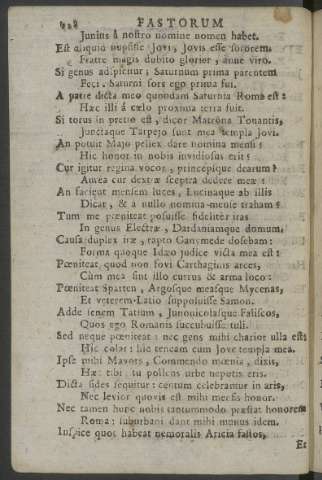 FASTORUM
Junius à nostro nomine nomen habet.
Est aliquid nupsisse Jovi, Jovis esse sororem.
Fratre magis dubito glorier, anne viro.
Si genus adspicitur; Saturnum prima parentem
Feci. Saturni sors ego prima fui.
A patre dicta meo quondam Saturnia Roma est:
Hæc illi á cœlo proxima terra fuit.
Si torus in pretio est, dicor Matrona Tonantis,
Junctaque Tarpejo sunt mea templa Jovi.
An potuit Majo pellex dare nomina mensi:
Hic honor in nobis invidiosus erit:
Cur igitur regina vocor, princepsque dearum?
Aurea cur dextræ sceptra dedere meæ:
An facient mensem luces, Lucinaque ab illis
Dicar, & a nullo nomina mense traham:
Tum me pœniteat posuisse fideliter iras
In genus Electræ, Dardaniamque domum.
Causa duplex iræ, rapto Ganymede dolebam:
Forma quoque Idæo judice victa mea est:
Pœniteat, quod non fovi Carthaginis arces,
Cum mea sint illo currus & arma loco:
Pœniteat Sparten, Argosque measque Mycenas,
Et veterem Latio supposuisse Samon.
Adde senem Tatium, Junonicolasque Faliscos,
Quos ego Romanis succubuisse tuli.
Sed neque pœniteat: nec gens mihi charior ulla est;
Hic colar: hic teneam cum Jove templa mea.
Ipse mihi Mavors, Commendo mœnia, dixit,
Hæc tibi: tu pollens urbe nepotis eris.
Dicta fides sequitur: centum celebramur in aris,
Nec levior quovis est mihi mensis honor.
Nec tamen hunc nobis tantummodo præstat honorem
Roma: suburbani dant mihi munus idem.
Inspice quos habeat nemoralis Aricia fastos,
Et